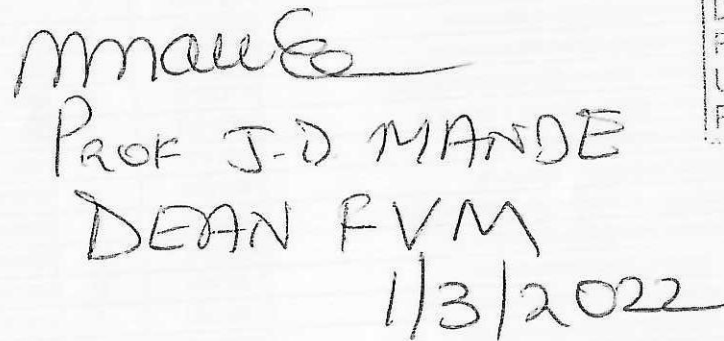 PROF J.D MANDE
DEAN FVM
1/3/2022